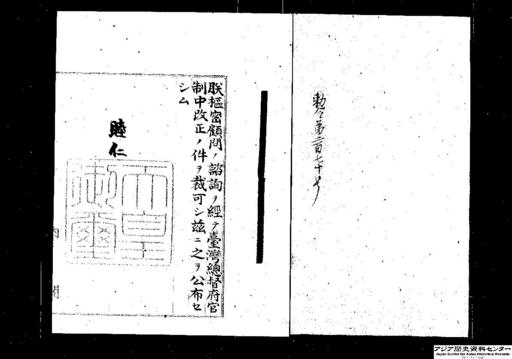 勅令第二百七十号
朕枢密顧問ノ諮詢ヲ経テ臺灣總督府官
制中改正ノ件ヲ裁可シ茲ニ之ヲ公布セ
シム
睦仁
天皇
御璽
内閣
アジア歴史資料センター
Japan Center for Asian Historical Records